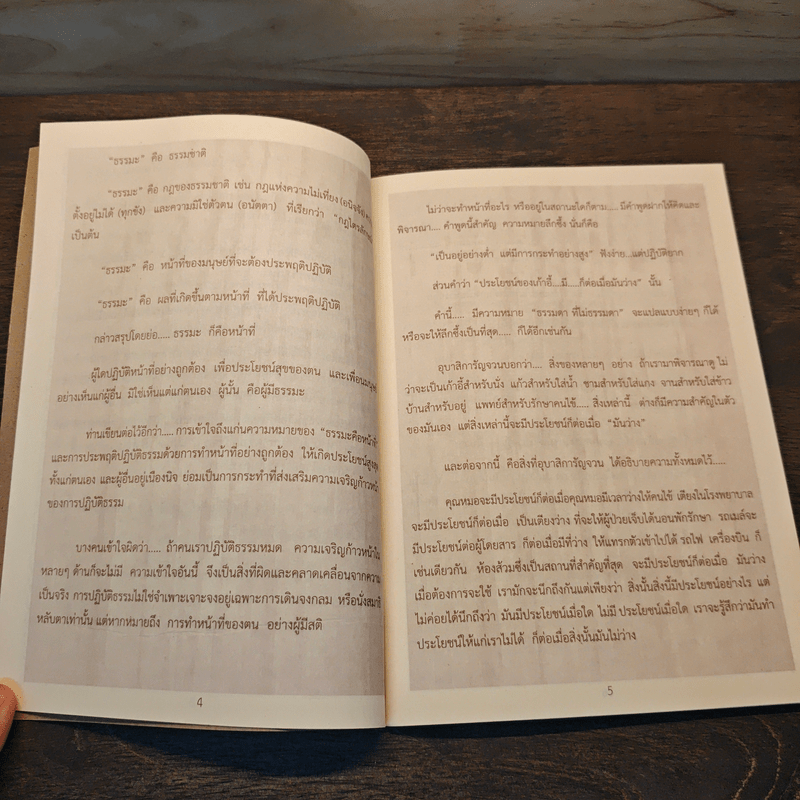 "ธรรมะ" คือ ธรรมชาติ
"ธรรมะ" คือ กฎของธรรมชาติ เช่น กฎแห่งความไม่เที่ยง (อนิจจัง)
ตั้งอยู่ไม่ได้ (ทุกขัง) และความมิใช่ตัวตน (อนัตตา) ที่เรียกว่า
เป็นต้น
"ธรรมะ" คือ หน้าที่ของมนุษย์ที่จะต้องประพฤติปฏิบัติ
"ธรรมะ" คือ ผลที่เกิดขึ้นตามหน้าที่ ที่ได้ประพฤติปฏิบัติ
กล่าวสรุปโดยย่อ..... ธรรมะ ก็คือหน้าที่
ผู้ใดปฏิบัติหน้าที่อย่างถูกต้อง เพื่อประโยชน์สุขของตน
อย่างเห็นแก่ผู้อื่น มิใช่เห็นแต่แก่ตนเอง ผู้นั้น คือผู้มีธรรมะ
ท่านเขียนต่อไว้อีกว่า..... การเข้าใจถึงแก่นความหมายของ
และการประพฤติปฏิบัติธรรมด้วยการทำหน้าที่อย่างถูกต้อง ให้เกิดประโยชน์
ทั้งแก่ตนเอง และผู้อื่นอยู่เนืองนิจ ย่อมเป็นการกระทำที่ส่งเสริมความเจริญก้าวหน้า
ของการปฏิบัติธรรม
บางคนเข้าใจผิดว่า..... ถ้าคนเราปฏิบัติธรรมหมด ความเจริญก้าวหน้าใน
หลายๆ ด้านก็จะไม่มี ความเข้าใจอันนี้ จึงเป็นสิ่งที่ผิดและคลาดเคลื่อนจากความ
เป็นจริง การปฏิบัติธรรมไม่ใช่จำเพาะเจาะจงอยู่เฉพาะการเดินจงกลม หรือนั่งสมาธิ
หลับตาเท่านั้น แต่หากหมายถึง การทำหน้าที่ของตน อย่างผู้มีสติ
4
ไม่ว่าจะทำหน้าที่อะไร หรืออยู่ในสถานะใดก็ตาม..... มีคำพูดฝากให้คิดและ
พิจารณา.... คำพูดนี้สำคัญ ความหมายลึกซึ้ง นั่นก็คือ
"เป็นอยู่อย่างต่ำ แต่มีการกระทำอย่างสูง" ฟังง่าย...แต่ปฏิบัติยาก
ส่วนคำว่า "ประโยชน์ของเก้าอี้....มี.....ก็ต่อเมื่อมันว่าง" นั้น
คำนี้..... มีความหมาย "ธรรมดา ที่ไม่ธรรมดา" จะแปลแบบง่ายๆ ก็ได้
หรือจะให้ลึกซึ้งเป็นที่สุด..... ก็ได้อีกเช่นกัน
อุบาสิการัญจวนบอกว่า.... สิ่งของหลายๆ อย่าง ถ้าเรามาพิจารณาดู ไม่
ว่าจะเป็นเก้าอี้สำหรับนั่ง แก้วสำหรับใส่น้ำ ชามสำหรับใส่แกง จานสำหรับใส่ข้าว
บ้านสำหรับอยู่ แพทย์สำหรับรักษาคนไข้..... สิ่งเหล่านี้ ต่างก็มีความสำคัญในตัว
ของมันเอง แต่สิ่งเหล่านี้จะมีประโยชน์ก็ต่อเมื่อ "มันว่าง"
และต่อจากนี้ คือสิ่งที่อุบาสิการัญจวน ได้อธิบายความทั้งหมดไว้.....
คุณหมอจะมีประโยชน์ก็ต่อเมื่อคุณหมอมีเวลาว่างให้คนไข้ เตียงในโรงพยาบาล
จะมีประโยชน์ก็ต่อเมื่อ เป็นเตียงว่าง ที่จะให้ผู้ป่วยเจ็บได้นอนพักรักษา รถเมล์จะ
มีประโยชน์ต่อผู้โดยสาร ก็ต่อเมื่อมีที่ว่าง ให้แทรกตัวเข้าไปได้ รถไฟ เครื่องบิน ก็
เช่นเดียวกัน ห้องส้วมซึ่งเป็นสถานที่สำคัญที่สุด จะมีประโยชน์ก็ต่อเมื่อ มันว่าง
เมื่อต้องการจะใช้ เรามักจะนึกถึงกันแต่เพียงว่า สิ่งนั้นสิ่งนี้มีประโยชน์อย่างไร แต่
ไม่ค่อยได้นึกถึงว่า มันมีประโยชน์เมื่อใด ไม่มี ประโยชน์เมื่อใด เราจะรู้สึกว่ามันทำ
ประโยชน์ให้แก่เราไม่ได้ ก็ต่อเมื่อสิ่งนั้นมันไม่ว่าง
5